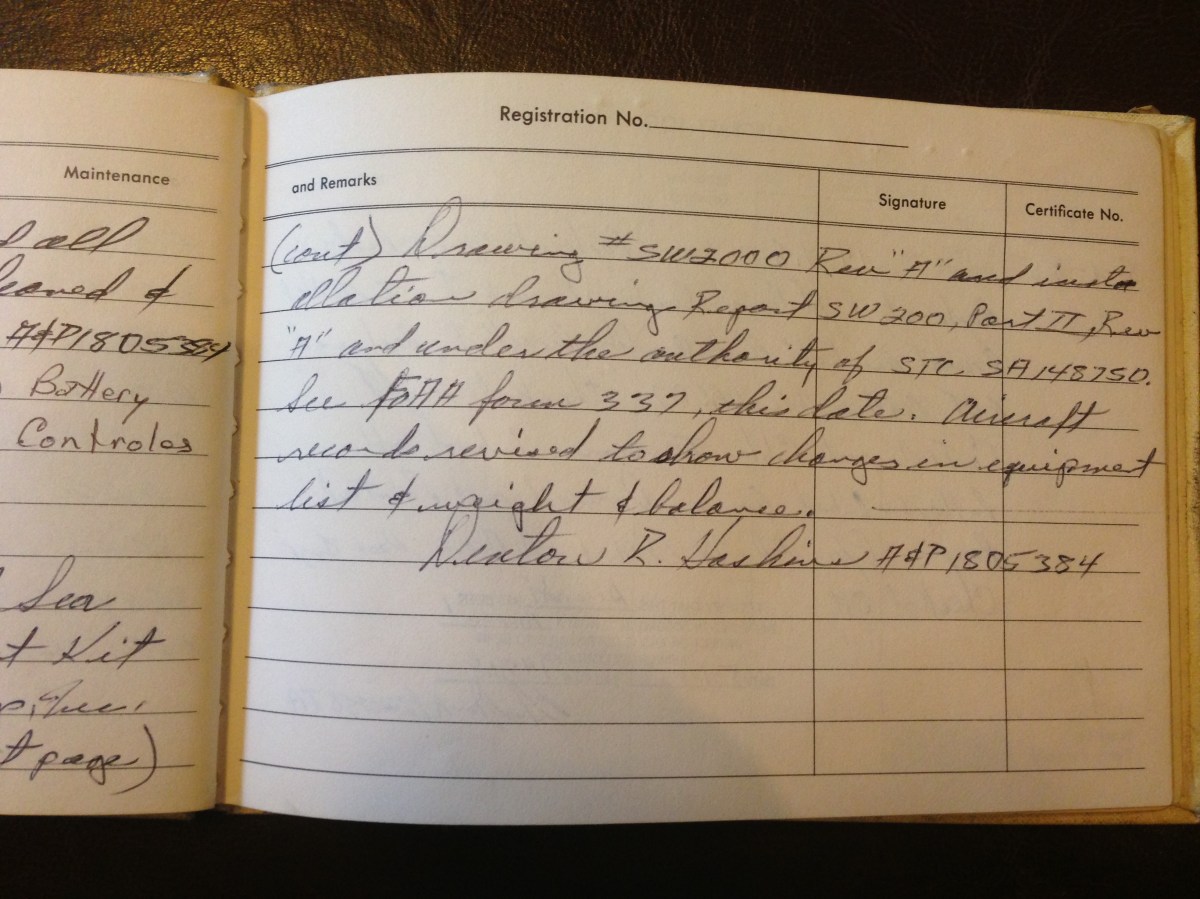 Maintenance
d all
leaned &
A&P1805384
Battery
Controles
Sea
t Kit
t page)
Registration No.
and Remarks
Signature
Certificate No.
(cont) Drawing #SW2000 Rev "A" and insta
allation drawing Report SW 200, Part II, Rev
"A" and under the authority of STC SA1487SO.
See FAA form 337, this date. Aircraft
records revised to show changes in equipment
list & weight & balance.
Denton R. Haskins A&P1805384